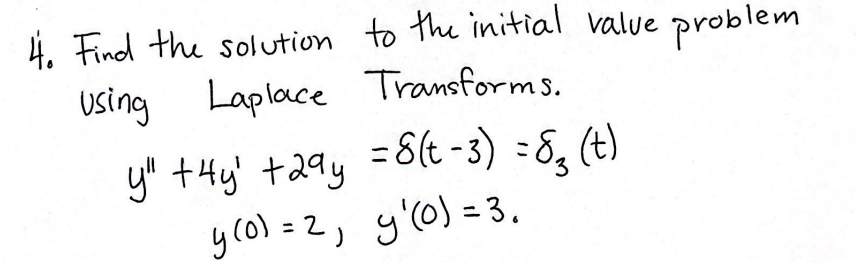 4. Find the solution to the initial value problem
using Laplace Transforms.
y" + 4y' + 29y = δ(t-3) = δ₃(t)
y(0) = 2, y'(0) = 3.